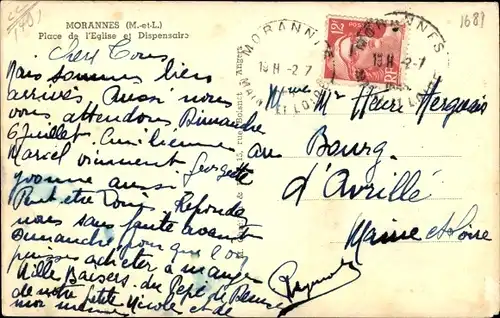 MORANNES (M.-et-L.)
Place de l'Eglise et Dispensaire
1681
MORANNES
18H -2-7
MAINE ET LOIRE
12F
MORANNES
18H -2-7
Chers Tous
Nous sommes bien
arrivés Aussi nous
vous attendons Dimanche
6 juillet Emilienne
Marcel viennent Georgette
Yvonne aussi
Peut-être Tous Réponde
nous sans faute avant
Dimanche pour que l'on
puisse acheter à manger
Mille Baisers du Pépé de
de notre petite Nicole et de
Mme Mr Henri
au Bourg
d'Avrillé
Maine et Loire